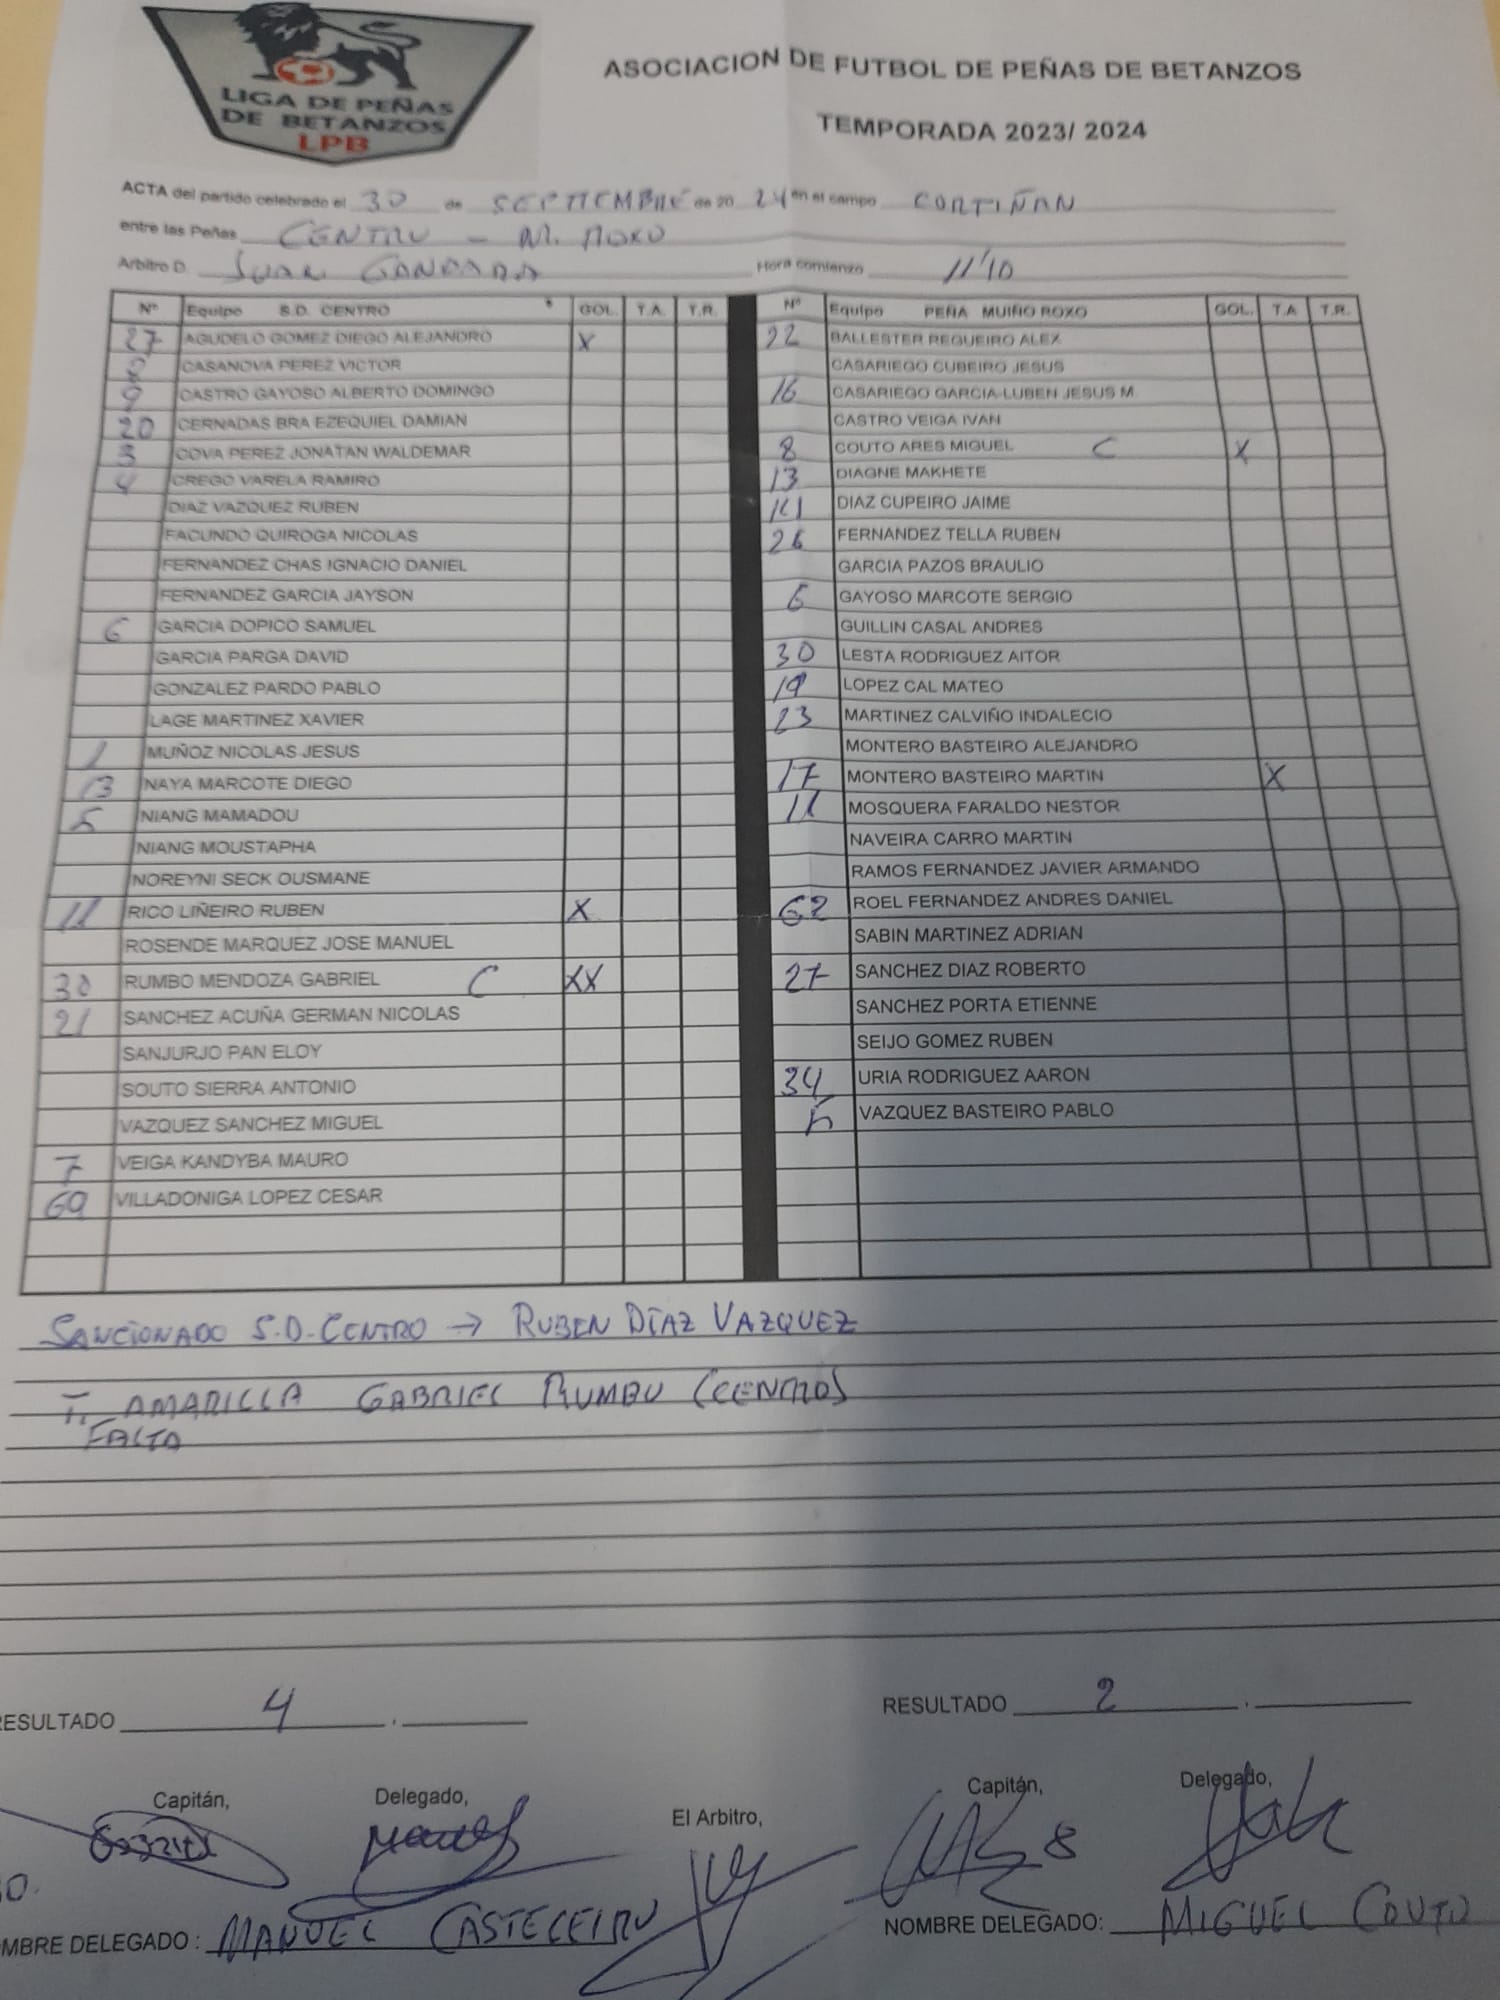 LIGA DE PEÑAS
DE BETANZOS
LPB
ASOCIACION DE FUTBOL DE PEÑAS DE BETANZOS
TEMPORADA 2023/ 2024
ACTA del partido celebrado el 30 de SEPTIEMBRE de 20 24 en el campo CORTIÑAN
entre las Peñas CENTRO - M. ROXO
Arbitro D. JUAN GANDARA Hora comienzo 11'10
Nº Equipo S.D. CENTRO GOL. T.A. T.R.
27 AGUDELO GOMEZ DIEGO ALEJANDRO X
CASANOVA PEREZ VICTOR
9 CASTRO GAYOSO ALBERTO DOMINGO
20 CERNADAS BRA EZEQUIEL DAMIAN
3 COVA PEREZ JONATAN WALDEMAR
4 CREGO VARELA RAMIRO
DIAZ VAZQUEZ RUBEN
FACUNDO QUIROGA NICOLAS
FERNANDEZ CHAS IGNACIO DANIEL
FERNANDEZ GARCIA JAYSON
6 GARCIA DOPICO SAMUEL
GARCIA PARGA DAVID
GONZALEZ PARDO PABLO
LAGE MARTINEZ XAVIER
1 MUÑOZ NICOLAS JESUS
13 NAYA MARCOTE DIEGO
5 NIANG MAMADOU
NIANG MOUSTAPHA
NOREYNI SECK OUSMANE
11 RICO LIÑEIRO RUBEN X
ROSENDE MARQUEZ JOSE MANUEL
30 RUMBO MENDOZA GABRIEL C XX
21 SANCHEZ ACUÑA GERMAN NICOLAS
SANJURJO PAN ELOY
SOUTO SIERRA ANTONIO
VAZQUEZ SANCHEZ MIGUEL
7 VEIGA KANDYBA MAURO
69 VILLADONIGA LOPEZ CESAR
Nº Equipo PEÑA MUIÑO ROXO GOL. T.A T.R.
22 BALLESTER REGUEIRO ALEX
CASARIEGO CUBEIRO JESUS
16 CASARIEGO GARCIA-LUBEN JESUS M.
CASTRO VEIGA IVAN
8 COUTO ARES MIGUEL C X
13 DIAGNE MAKHETE
DIAZ CUPEIRO JAIME
26 FERNANDEZ TELLA RUBEN
GARCIA PAZOS BRAULIO
6 GAYOSO MARCOTE SERGIO
GUILLIN CASAL ANDRES
30 LESTA RODRIGUEZ AITOR
19 LOPEZ CAL MATEO
23 MARTINEZ CALVIÑO INDALECIO
MONTERO BASTEIRO ALEJANDRO
17 MONTERO BASTEIRO MARTIN X
11 MOSQUERA FARALDO NESTOR
NAVEIRA CARRO MARTIN
RAMOS FERNANDEZ JAVIER ARMANDO
62 ROEL FERNANDEZ ANDRES DANIEL
SABIN MARTINEZ ADRIAN
27 SANCHEZ DIAZ ROBERTO
SANCHEZ PORTA ETIENNE
SEIJO GOMEZ RUBEN
34 URIA RODRIGUEZ AARON
5 VAZQUEZ BASTEIRO PABLO
SANCIONADO S.D. CENTRO → RUBEN DÍAZ VAZQUEZ
T. AMARILLA GABRIEL RUMBO (CENTRO)
FALTA
RESULTADO 4 .
RESULTADO 2 .
Capitán, Delegado, El Arbitro, Capitán, Delegado,
8
MBRE DELEGADO : MANUEL CASTELEIRO
NOMBRE DELEGADO: MIGUEL COUTO